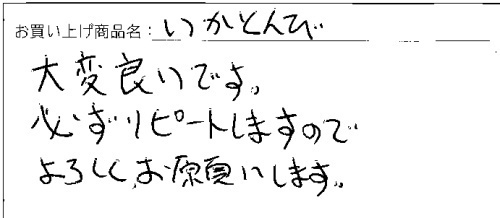 お買い上げ商品名：いかとんび
大変良いです。
必ずリピートしますので
よろしくお願いします。